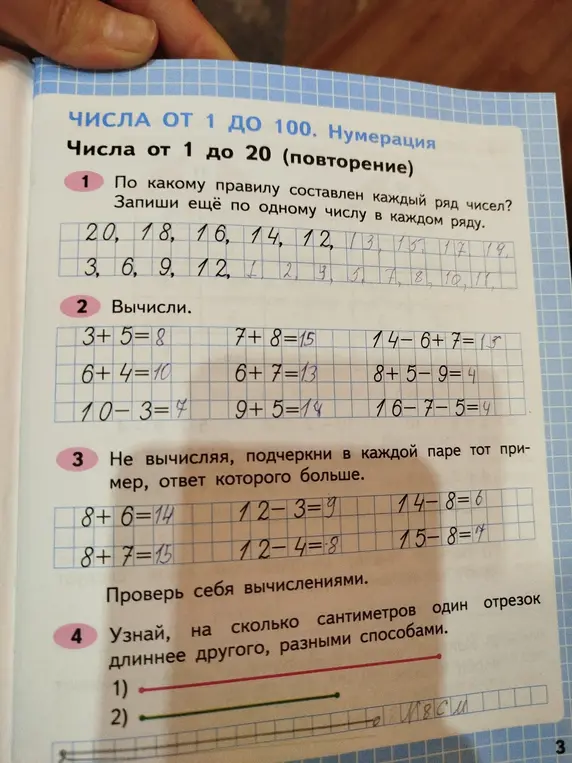 ЧИСЛА ОТ 1 ДО 100. Нумерация
Числа от 1 до 20 (повторение)
1 По какому правилу составлен каждый ряд чисел?
Запиши ещё по одному числу в каждом ряду.
20, 18, 16, 14, 12, 13, 15, 17, 19.
3, 6, 9, 12, 1, 2, 5, 7, 8, 10, 11.
2 Вычисли.
3+5=8 7+8=15 14-6+7=15
6+4=10 6+7=13 8+5-9=4
10-3=7 9+5=14 16-7-5=4
3 Не вычисляя, подчеркни в каждой паре тот при-
мер, ответ которого больше.
8+6=14 12-3=9 14-8=6
8+7=15 12-4=8 15-8=7
Проверь себя вычислениями.
4 Узнай, на сколько сантиметров один отрезок
длиннее другого, разными способами.
1)
2)
8 см
3